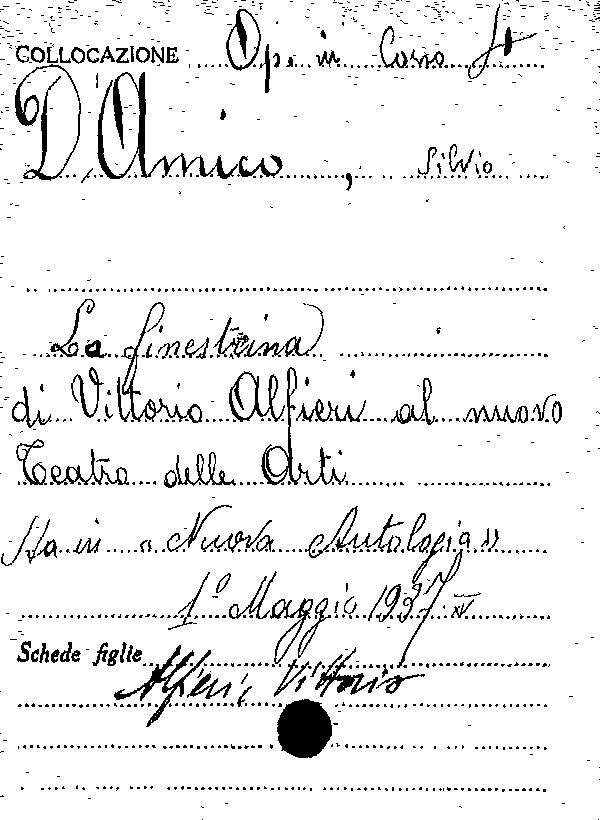 COLLOCAZIONE Op. in Corso
D'Amico, Silvio
La finestrina
di Vittorio Alfieri al nuovo
Teatro delle Arti
Sta in «Nuova Antologia»
1º Maggio 1937
Schede figlie
Alfieri, Vittorio